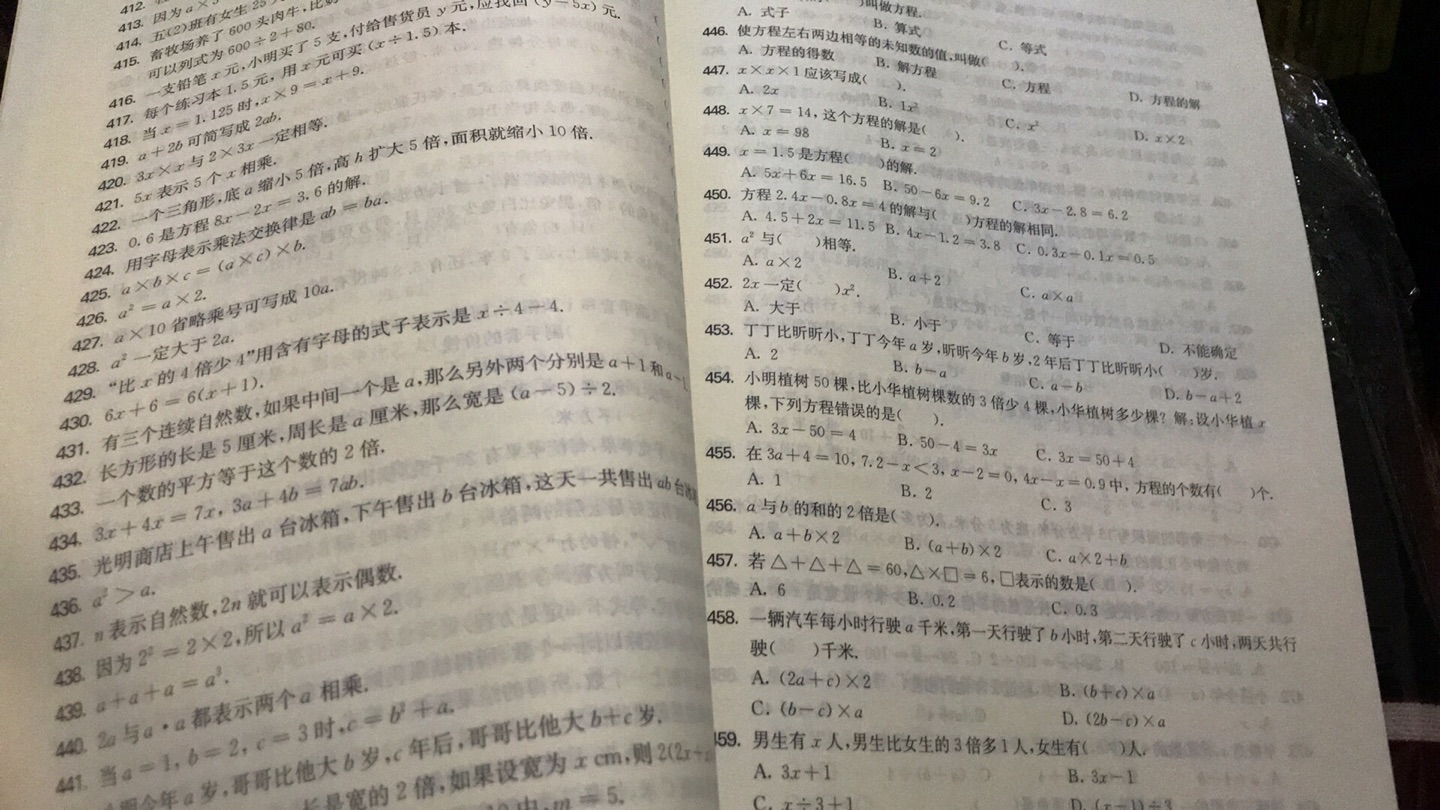 412.
413. 因为a×5
414. 五(2)班有女生25
415. 畜牧场养了600头肉牛,比
可以列式为600÷2+80.
416. 一支铅笔x元,小明买了5支,付给售货员y元,应找回(y-5x)元.
417. 每个练习本1.5元,用x元可买(x÷1.5)本.
418. 当x=1.125时,x×9=x+9.
419. a+2b可简写成2ab.
420. 3x×x与2×3x一定相等.
421. 5x表示5个x相乘.
422. 一个三角形,底a缩小5倍,高h扩大5倍,面积就缩小10倍.
423. 0.6是方程8x-2x=3.6的解.
424. 用字母表示乘法交换律是ab=ba.
425. a×b×c=(a×c)×b.
426. a²=a×2.
427. a×10省略乘号可写成10a.
428. a²一定大于2a.
429. “比x的4倍少4”用含有字母的式子表示是x÷4-4.
430. 6x+6=6(x+1).
431. 有三个连续自然数,如果中间一个是a,那么另外两个分别是a+1和a-1.
432. 长方形的长是5厘米,周长是a厘米,那么宽是(a-5)÷2.
433. 一个数的平方等于这个数的2倍.
434. 3x+4x=7x,3a+4b=7ab.
435. 光明商店上午售出a台冰箱,下午售出b台冰箱,这天一共售出ab台冰
436. a²>a.
437. n表示自然数,2n就可以表示偶数.
438. 因为2²=2×2,所以a²=a×2.
439. a+a+a=a³.
440. 2a与a·a都表示两个a相乘.
441. 当a=1,b=2,c=3时,c=b²+a.
今年a岁,哥哥比他大b岁,c年后,哥哥比他大b+c岁.
长是宽的2倍,如果设宽为x cm,则2(2x+
中,m=5.
)叫做方程.
A. 式子 B. 算式 C. 等式
446. 使方程左右两边相等的未知数的值,叫做( ).
A. 方程的得数 B. 解方程 C. 方程 D. 方程的解
447. x×x×1应该写成( ).
A. 2x B. 1x² C. x² D. x×2
448. x×7=14,这个方程的解是( ).
A. x=98 B. x=2
449. x=1.5是方程( )的解.
A. 5x+6x=16.5 B. 50-6x=9.2 C. 3x-2.8=6.2
450. 方程2.4x-0.8x=4的解与( )方程的解相同.
A. 4.5+2x=11.5 B. 4x-1.2=3.8 C. 0.3x-0.1x=0.5
451. a²与( )相等.
A. a×2 B. a+2 C. a×a
452. 2x一定( )x².
A. 大于 B. 小于 C. 等于 D. 不能确定
453. 丁丁比昕昕小,丁丁今年a岁,昕昕今年b岁,2年后丁丁比昕昕小( )岁.
A. 2 B. b-a C. a-b D. b-a+2
454. 小明植树50棵,比小华植树棵数的3倍少4棵,小华植树多少棵?解:设小华植x
棵,下列方程错误的是( ).
A. 3x-50=4 B. 50-4=3x C. 3x=50+4
455. 在3a+4=10,7.2-x<3,x-2=0,4x-x=0.9中,方程的个数有( )个.
A. 1 B. 2 C. 3
456. a与b的和的2倍是( ).
A. a+b×2 B. (a+b)×2 C. a×2+b
457. 若△+△+△=60,△×□=6,□表示的数是( ).
A. 6 B. 0.2 C. 0.3
458. 一辆汽车每小时行驶a千米,第一天行驶了b小时,第二天行驶了c小时,两天共行
驶( )千米.
A. (2a+c)×2 B. (b+c)×a
C. (b-c)×a D. (2b-c)×a
459. 男生有x人,男生比女生的3倍多1人,女生有( )人.
A. 3x+1 B. 3x-1
C. x÷3+1 D. (x-1)÷3